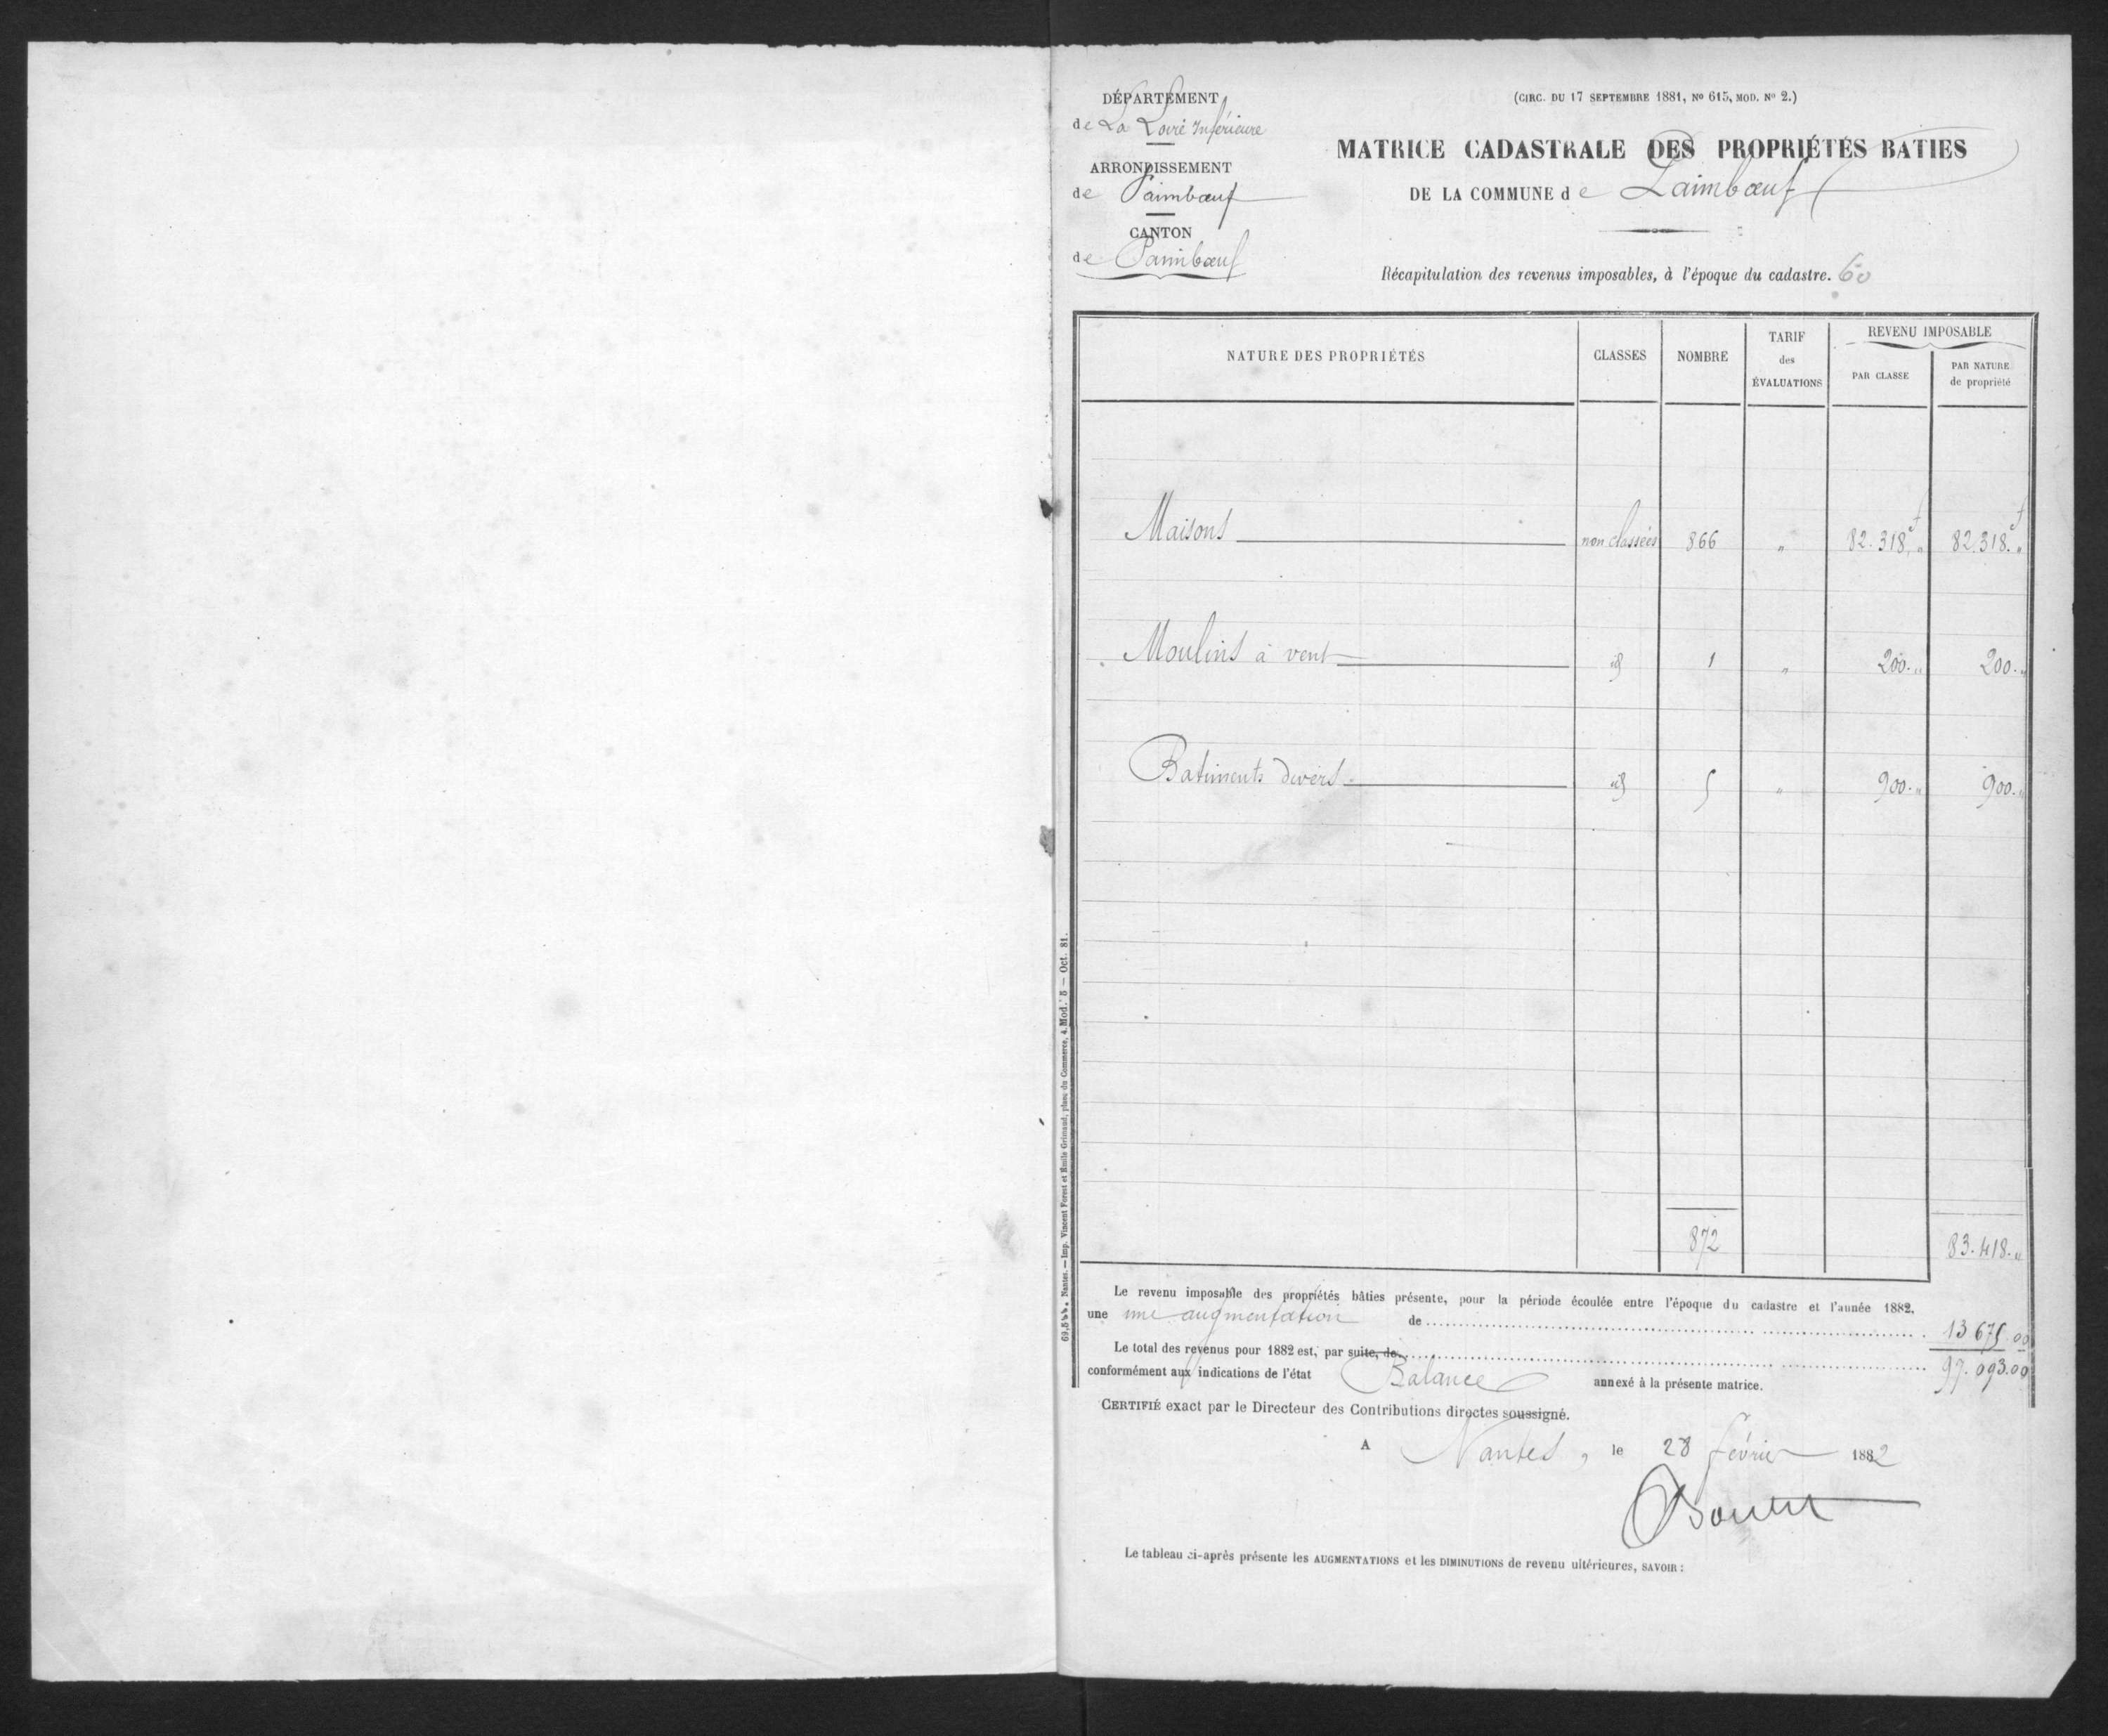 DÉPARTEMENT
de La Loire Inférieure
ARRONDISSEMENT
de Paimbœuf
CANTON
de Paimbœuf
(CIRC. DU 17 SEPTEMBRE 1881, No 615, MOD. No 2.)
MATRICE CADASTRALE DES PROPRIÉTÉS BATIES
DE LA COMMUNE de Paimbœuf
Récapitulation des revenus imposables, à l'époque du cadastre. 60
NATURE DES PROPRIÉTÉS CLASSES NOMBRE TARIF des ÉVALUATIONS REVENU IMPOSABLE PAR CLASSE PAR NATURE de propriété
Maisons non classées 866 " 82.318f " 82.318f "
Moulins à vent id 1 " 200. " 200. "
Batiments divers id 5 " 900. " 900. "
872 83.418. "
Le revenu imposable des propriétés bâties présente, pour la période écoulée entre l'époque du cadastre et l'année 1882,
une une augmentation de 13 675.00
Le total des revenus pour 1882 est, par suite, de 97.093.00
conformément aux indications de l'état Balance annexé à la présente matrice.
CERTIFIÉ exact par le Directeur des Contributions directes soussigné.
A Nantes, le 28 février 1882
Le tableau ci-après présente les AUGMENTATIONS et les DIMINUTIONS de revenu ultérieures, SAVOIR :
Nantes. — Imp. Vincent Forest et Emile Grimaud, place du Commerce, 4. Mod. 5 — Oct. 81.